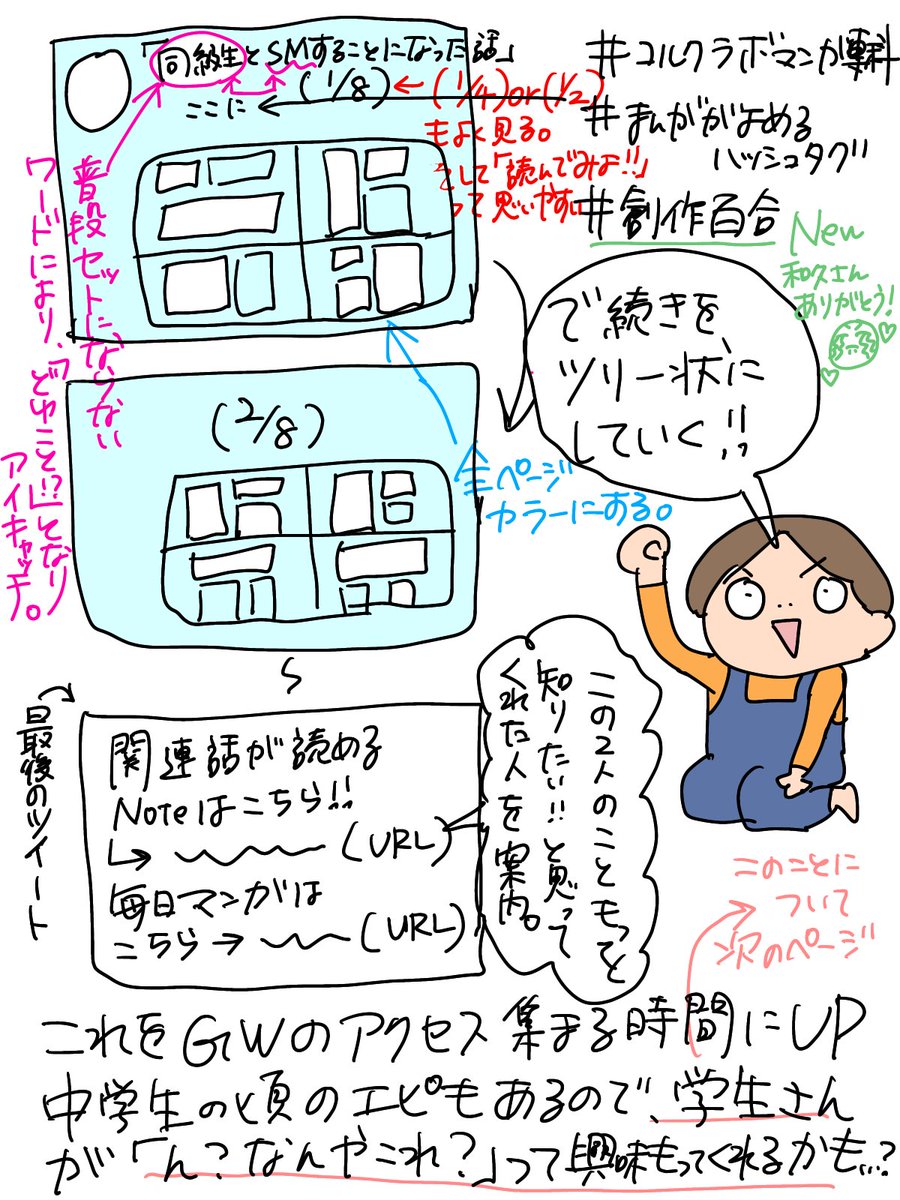 「同級生とSMすることになった話」
(1/8)
ここに
←(1/4)or(1/2)
もよく見る。
そして「読んでみよ!!」
って思いやすい
#コルクラボマンガ専科
#まんががよめる
ハッシュタグ
#創作百合
New
和久さん
ありがとう!
普段セットにならない
ワードにより、「どゆこと!?」となり
アイキャッチ。
で続きを
ツリー状に
していく!!
(2/8)
全ページ
カラーにする。
最後のツイート
関連話が読める
Noteはこちら!!
(URL)
毎日マンガは
こちら→ (URL)
この2人のこともっと
知りたい!!と思って
くれた人を案内。
このことに
ついて
次のページ
これをGWのアクセス集まる時間にUP
中学生の頃のエピもあるので、学生さん
が「ん?なんやこれ?」って興味もってくれるかも…?